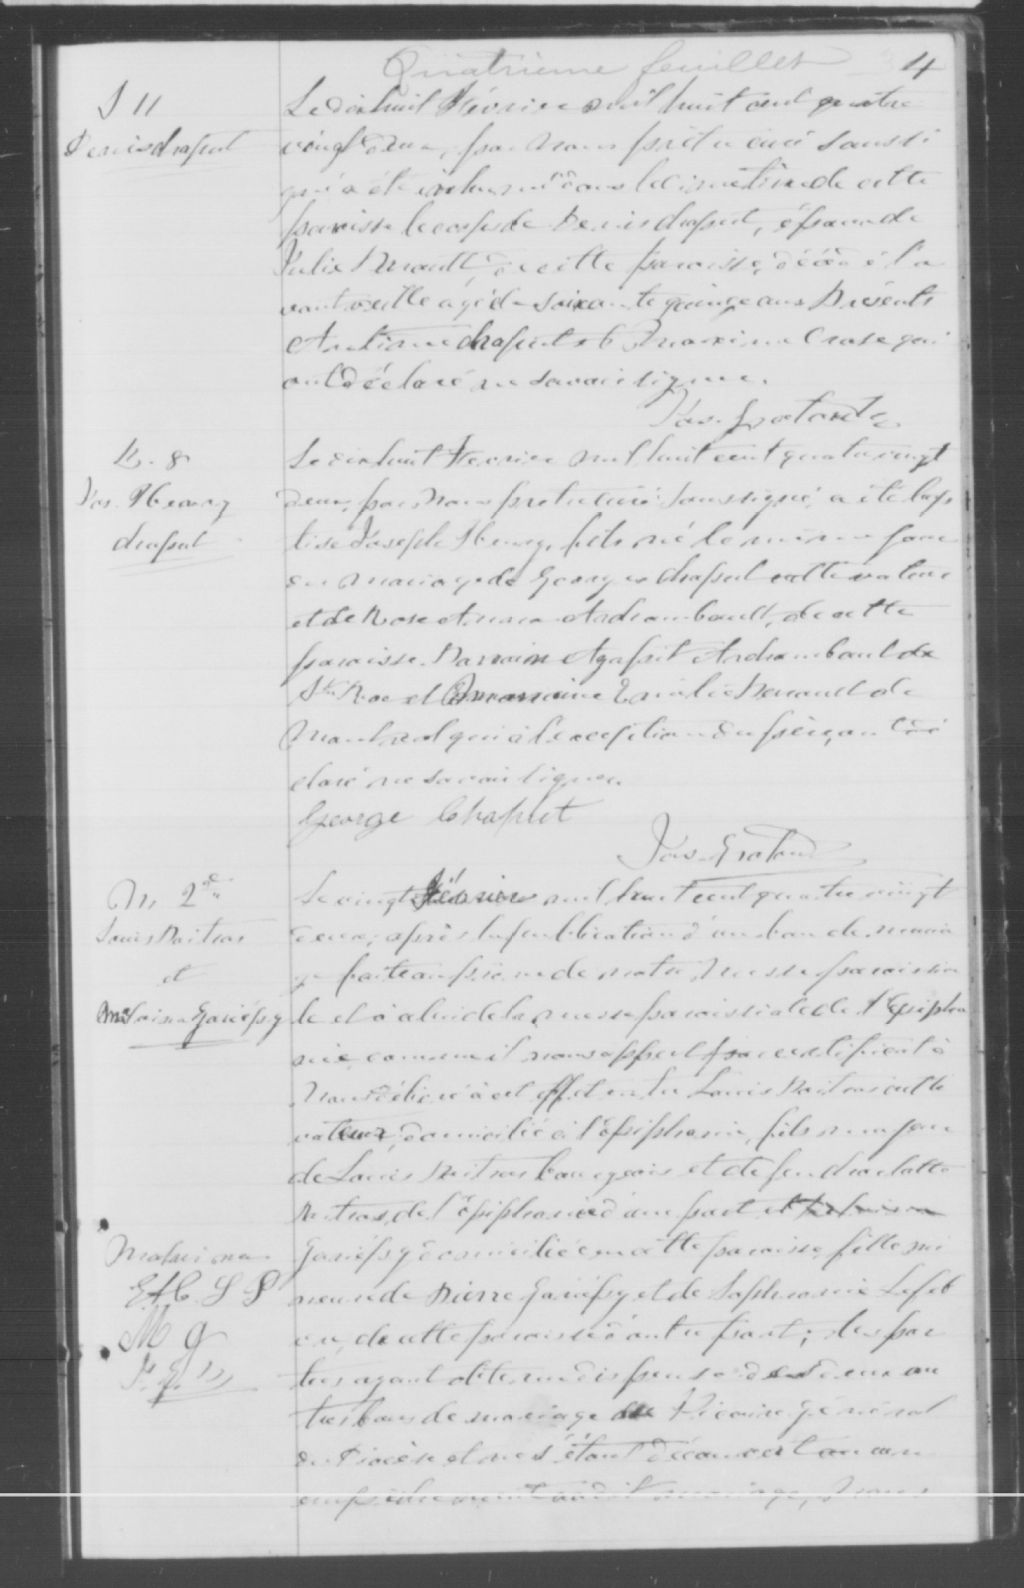 Quatrième feuillet 4
S 11
Denis chaput
Le dixhuit Février mil huit cent quatre
vingt deux, par nous prêtre curé soussi
gné a été inhumé dans le cimetière de cette
paroisse le corps de Denis chaput, époux de
Julie Renault de cette paroisse, décédé l'a
vant veille agé de soixante quinze ans Présents
chaput et qui
ont déclaré ne savoir signer.
Jos. Gratond
B. 8
Jos. Henry
chaput
Le dix huit Fevrier mil huit cent quatre vingt
deux, par nous prêtre curé soussigné a été bap
tisé Joseph Henry, fils né le même jour
du mariage de Georges chaput cultivateur
et de Rose Anna Archambault, de cette
paroisse. Parrain Agapit Archambault de
St Roc et marraine Emilie Renault de
Montreal qui à l'exception du père, ont dé
claré ne savoir signer.
George Chaput
Jos. Gratond
M 2de
Louis Poitras
et
Gariépy
Le vingt Février mil huit cent quatre vingt
deux, après la publication d'un ban de maria
ge faite au prône de notre Messe paroissia
le et à celui de la messe paroissiale de l'Epipha
nie comme il nous appert par certificat à
nous délivré à cet effet entre Louis Poitras culti
vateur, domicilié à l'épiphanie, fils majeur
de Louis Poitras bourgeois et de feu
Poitras, de l'épiphanie d'une part et
Gariépy domiciliée en cette paroisse, fille mi
neure de Pierre Gariépy et de Sophronie Lefeb
vre, de cette paroisse d'autre part; les par
ties ayant obtenu dispense de deux au
tres bans de mariage du Vicaire général
du Diocèse et ne s'étant découvert aucun
empêchement au dit mariage, Nous
M G